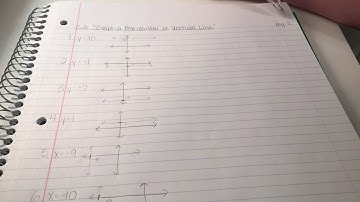 "Graph a Horizontal or Vertical Line"
1. y=10
2. y=-1
3. y=-7
4. y=1
5. x=-9
6. x=-10